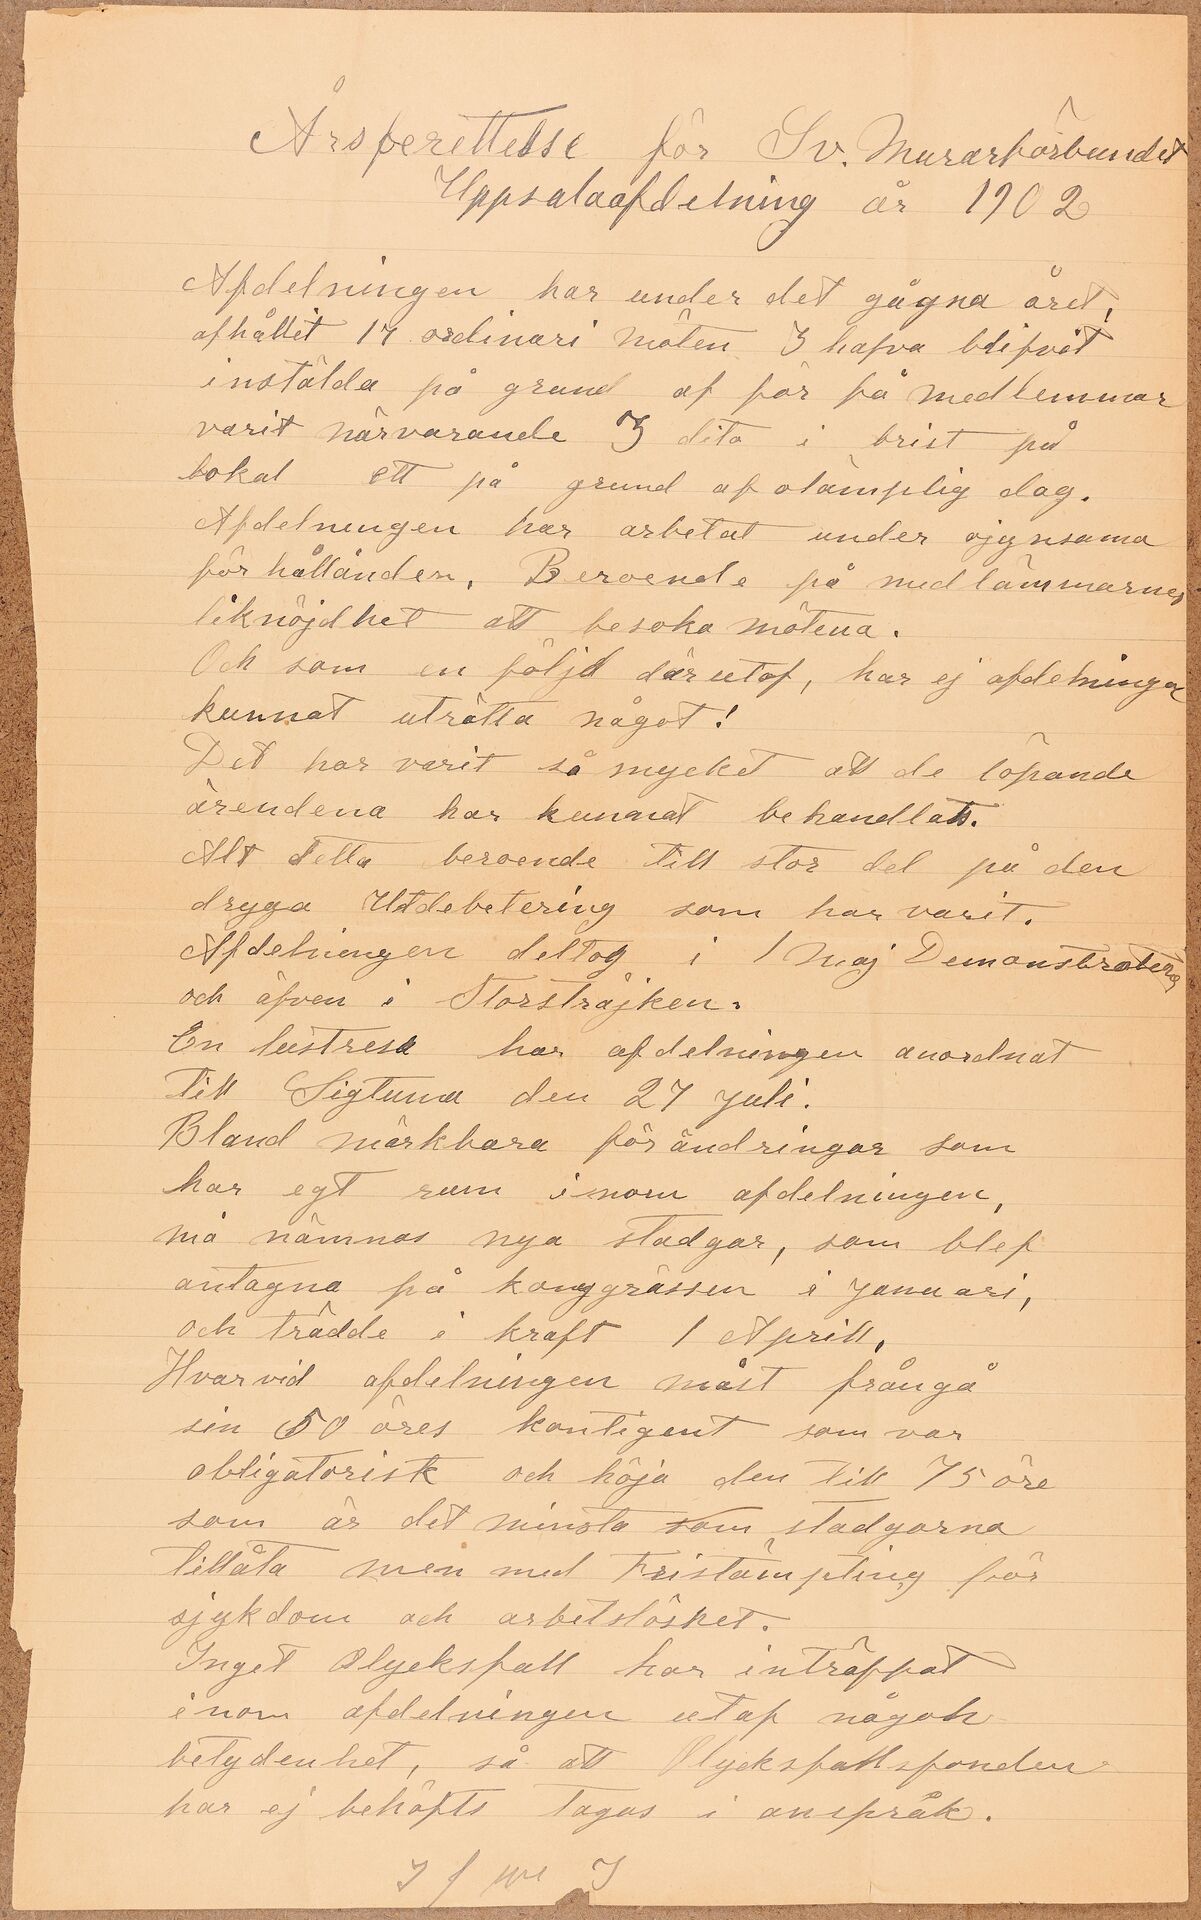 Årsberettelse för Sv. Murarförbundet
Uppsalaafdelning år 1902
Afdelningen har under det gågna året,
afhållit 17 ordinari möten 3 hafva blifvit
instälda på grund af för få medlemmar
varit närvarande 3 dito i brist på
lokal ett på grund af olämplig dag.
Afdelningen har arbetat under ogynsama
förhållånden, Beroende på medlämmarnes
liknöjdhet att besöka mötena.
Och som en följd därutaf, har ej afdelningen
kunnat uträtta något!
Det har varit så mycket att de löpande
ärendena har kunnat behandlats.
Alt detta beroende till stor del på den
dryga Utdebetering som har varit.
Afdelningen deltog i 1 Maj Demonstrationerna
och äfven i Storsträjken.
En lustresa har afdelningen anordnat
till Sigtuna den 27 juli.
Bland märkbara förändringar som
har egt rum inom afdelningen,
må nämnas nya stadgar, som blef
antagna på konggrässen i januari,
och trädde i kraft 1 Aprill,
Hvarvid afdelningen måst frångå
sin 50 öres kontigent som var
obligatorisk och höja den till 75 öre
som är det minsta som stadgarna
tillåta men med Fristämpling för
sjykdom och arbetslöshet.
Inget Olycksfall har inträffat
inom afdelningen utaf någon
betydenhet, så att Olycksfallsfonden
har ej behöfts tagas i anspråk.